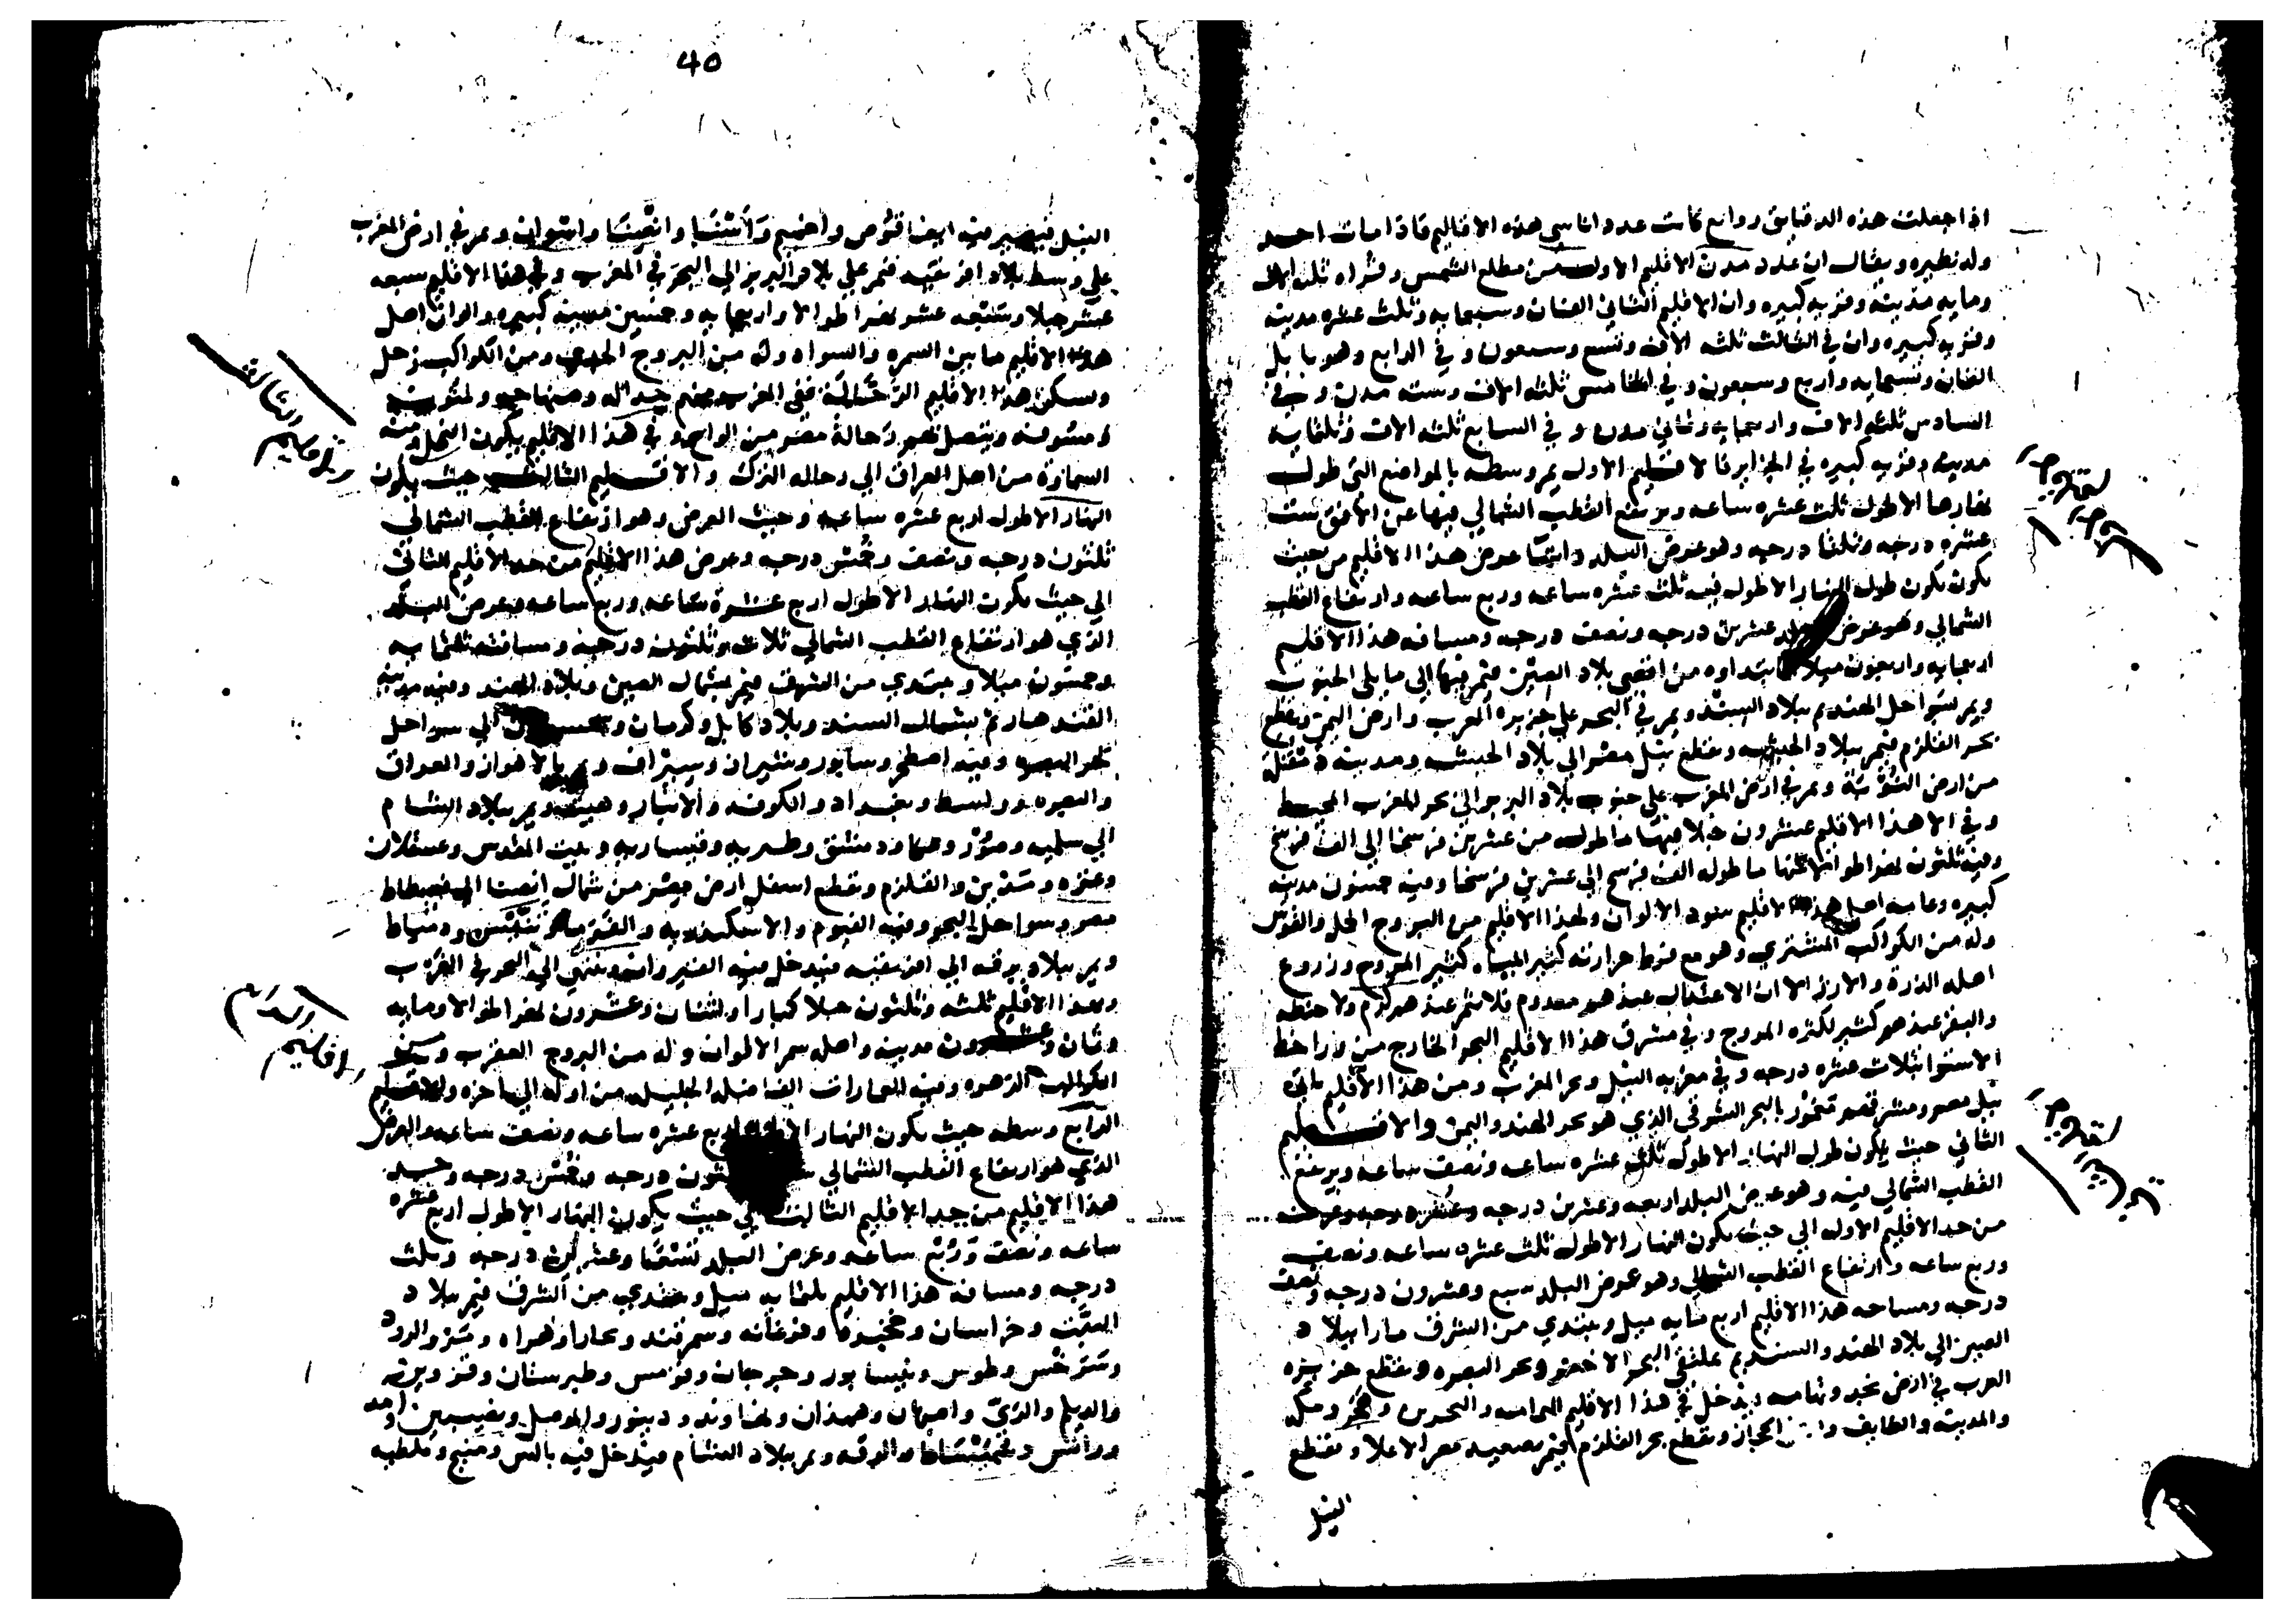 اذا جعلت هذه الدقايق روابع كانت عدد اناسي هذه الاقاليم فاذا مات احد
وله نظيره ويقال ان عدد مدن الاقليم الاول من مطلع الشمس وقراه ثلثه الاف
ومايه مدينه وقريه كبيره وان الاقليم الثاني الفان وسبعمايه وثلث عشره مدينه
وقريه كبيره وان في الثالث ثلثه الاف وتسع وسبعون وفي الرابع وهو بابل
الفان وتسعمايه واربع وسبعون وفي الخامس ثلثه الاف وسته مدن وفي
السادس ثلثه الاف واربعمايه وثماني مدن وفي السابع ثلثه الاف وثلثمايه
مدينه وقريه كبيره في الجزاير فالاقليم الاول يمر وسطه بالمواضع التي طول
نهارها الاطول ثلث عشره ساعه ويرتفع القطب الشمالي فيها عن الافق ست
عشره درجه وثلثا درجه وهو عرض البلد وانتها عرض هذا الاقليم من حيث
يكون يكون طول النهار الاطول فيه ثلث عشره ساعه وربع ساعه وارتفاع القطب
الشمالي وهو عرض البلد عشرين درجه ونصف درجه ومسافه هذا الاقليم
اربعمايه واربعون ميلا ابتداوه من اقصي بلاد الصين فيمر فيها الي ما يلي الجنوب
ويمر بسواحل الهند ثم ببلاد السند ويمر في البحر علي جزيره العرب وارض اليمن ويقطع
بحر القلزم فيمر ببلاد الحبشه ويقطع نيل مصر الي بلاد الحبشه ومدينه دمقله
من ارض النوبه ويمر في ارض المغرب علي جنوب بلاد البربر الي نحو المغرب المحيط
وفي الا هذا الاقليم عشرون جبلا فيها ما طوله من عشرين فرسخا الي الف فرسخ
وفيه ثلثون نهرا طوالا منها ما طوله الف فرسخ الي عشرين فرسخا وفيه خمسون مدينه
كبيره وعامه اهل هذا الاقليم سود الالوان ولهذا الاقليم من البروج الحمل والقوس
وله من الكواكب المشتري وهو مع فرط حرارته كثير المياه كثير المروج وزروع
اهله الذرة والارز الا ان الاعتدال عندهم معدوم فلا يثمر عندهم كرم ولا حنطه
والبقر عندهم كثير لكثره المروج وفي مشرق هذا الاقليم البحر الخارج من ورا خط
الاستوا بثلاث عشره درجه وفي مغربه النيل وبحر المغرب ومن هذا الاقليم ياتي
نيل مصر ومشرقهم معمور بالبحر الشرقي الذي هو بحر الهند واليمن والاقليم
الثاني حيث يكون طول النهار الاطول ثلث عشره ساعه ونصف ساعه ويرتفع
القطب الشمالي فيه وهو عرض البلد اربعه وعشرين درجه وعشره درجه وعرضه
من حد الاقليم الاول الي حيث يكون النهار الاطول ثلث عشره ساعه ونصف
وربع ساعه وارتفاع القطب الشمالي وهو عرض البلد سبع وعشرون درجه ونصف
درجه ومساحه هذا الاقليم اربع مايه ميل ويبتدي من الشرق مارا ببلاد
الصين الي بلاد الهند والسند ثم بملتقي البحر الاخضر وبحر البصره ويقطع جزيره
العرب في ارض نجد وتهامه فيدخل في هذا الاقليم اليمامه والبحرين وهجر ومكه
والمدينه والطايف وارض الحجاز ويقطع بحر القلزم فيمر بصعيد مصر الاعلا ويقطع
النيل
لاقليم
الاول
لاقليم
الثاني
40
النيل فيصير فيه ايضا قوص واخميم واسنا وانصنا واسوان ويمر في ارض المغرب
علي وسط بلاد افريقيه فيمر علي بلاد البربر الي البحر في المغرب وفي هذا الاقليم سبعه
عشر جبلا وسبعه عشر نهرا طوالا واربعمايه وخمسين مدينه كبيره والوان اهل
هذا الاقليم ما بين السمره والسواد وله من البروج الجدي ومن الكواكب زحل
ويسكن هذا الاقليم الرحاله ففي المغرب منهم جداله وصنهاجه ولمتونه
ومسوفه ويتصل بهم رحالة مصر من الواح وفي هذا الاقليم يكون النخل ومنه
السمازة من اهل العراق الي رحاله الترك والاقليم الثالث حيث يكون
النهار الاطول اربع عشره ساعه وحيث العرض وهو ارتفاع القطب الشمالي
ثلثون درجه ونصف وخمس درجه وعرض هذا الاقليم من حد الاقليم الثاني
الي حيث يكون النهار الاطول اربع عشرة ساعه وربع ساعه وعرض البلد
الذي هو ارتفاع القطب الشمالي ثلاث وثلثون درجه ومسافته ثلثمايه
وخمسون ميلا ويبتدي من الشرق فيمر بشمال الصين وبلاد الهند وفيه مدينه
القندهار ثم بشمال السند وبلاد كابل وكرمان وسجستان الي سواحل
بحر البصره وفيه اصطخر وسابور وشيراز وسيراف ويمر بالاهواز والعراق
والبصره وواسط وبغداد والكوفه والانبار وهيت ويمر ببلاد الشام
الي سلميه وصور وعكا ودمشق وطبريه وقيساريه وبيت المقدس وعسقلان
وغزه ومدين والقلزم ويقطع اسفل ارض مصر من شمال انصنا الي فسطاط
مصر وسواحل البحر وفيه الفيوم والاسكندريه والفرما وتنيس ودمياط
ويمر ببلاد برقه الي افريقيه فيدخل فيه القيروان وينتهي الي البحر في الغرب
وبهذا الاقليم ثلثه وثلثون جبلا كبارا واثنان وعشرون نهرا طوالا ومايه
وثمان وعشرون مدينه واهله سمر الالوان وله من البروج العقرب ومن
الكواكب الزهره وفيه العمارات المتصله من اوله الي اخره والاقليم
الرابع وسطه حيث يكون النهار الاطول اربع عشره ساعه ونصف ساعه والعرض
الذي هو ارتفاع القطب الشمالي ست وثلثون درجه وخمس درجه وحد
هذا الاقليم من حد الاقليم الثالث الي حيث يكون النهار الاطول اربع عشره
ساعه ونصف وربع ساعه وعرض البلد تسعا وعشرين درجه وثلث
درجه ومسافه هذا الاقليم ثلثمايه ميل ويبتدي من الشرق فيمر ببلاد
التبت وخراسان وخجنده وفرغانه وسمرقند وبخارا وهراه ومرو والرود
وسرخس وطوس ونيسابور وجرجان وقومس وطبرستان وقزوين
والديلم والري واصبهان وهمذان ونهاوند ودينور والموصل ونصيبين وامد
وراس وشميشاط والرقه ويمر ببلاد الشام فيدخل فيه بالس ومنبج وملطيه
الثالث
والاقليم
الرابع
والاقليم